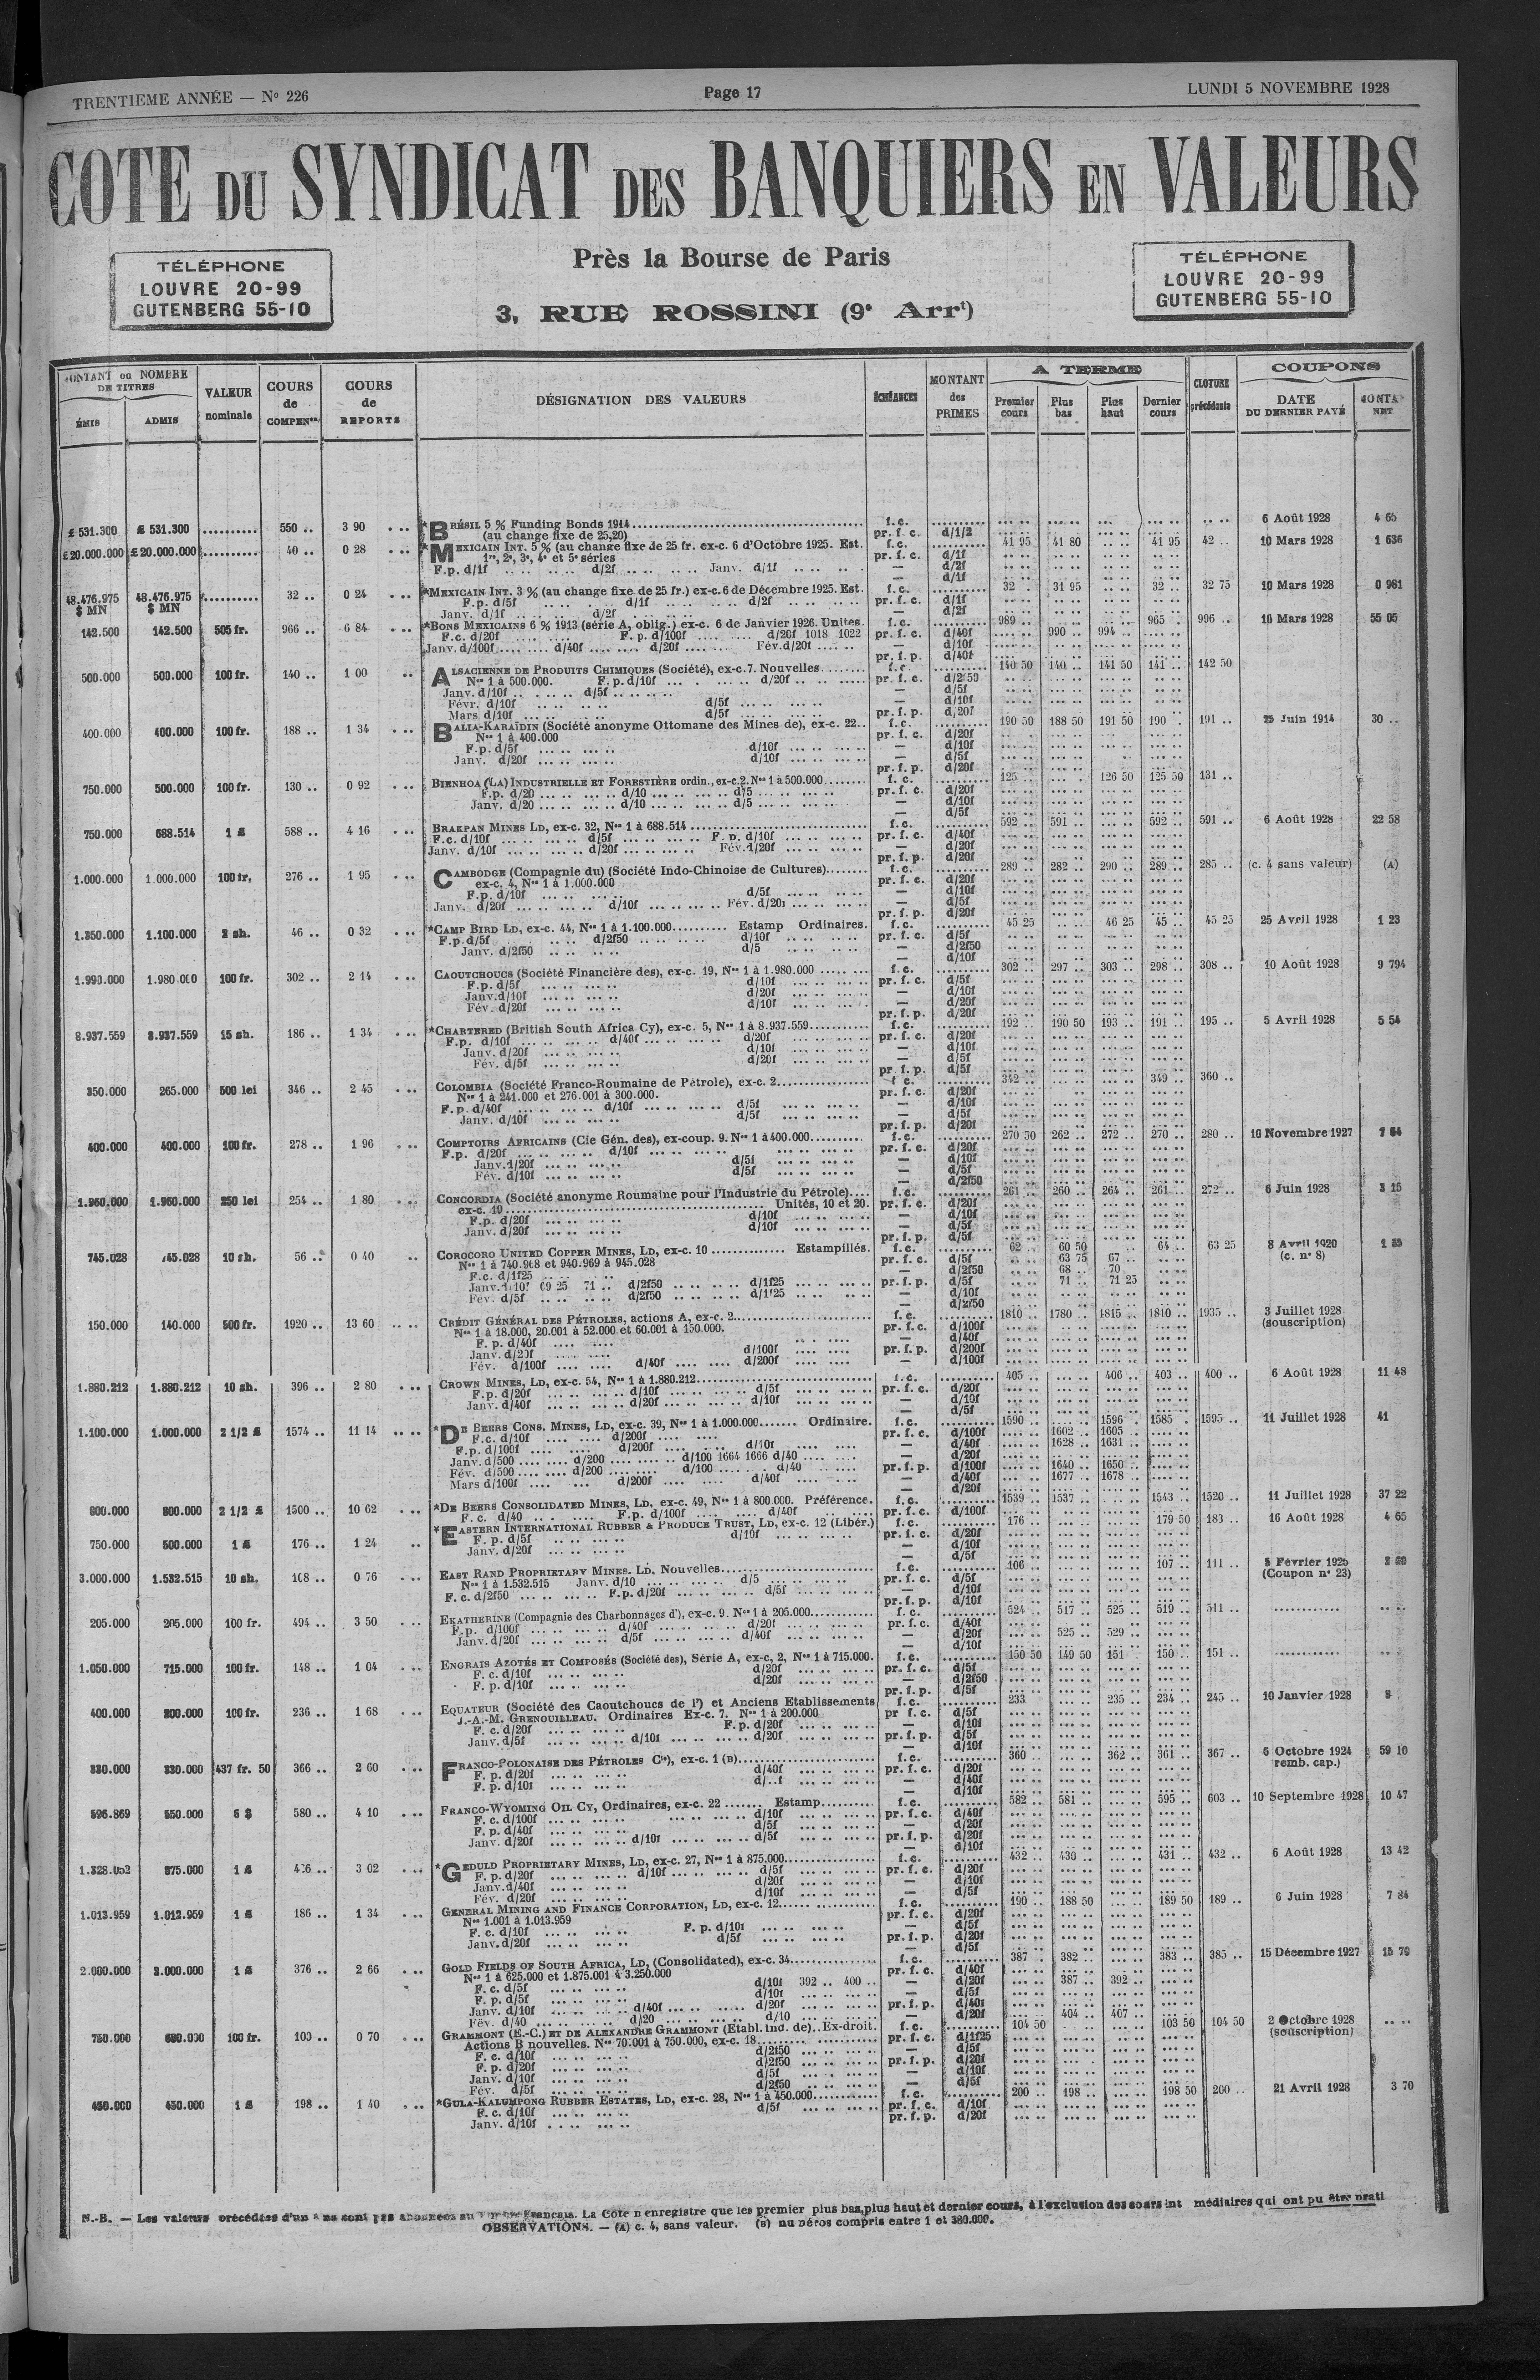 TRENTIEME ANNÉE — No 226
Page 17
LUNDI 5 NOVEMBRE 1928
COTE DU SYNDICAT DES BANQUIERS EN VALEURS
Près la Bourse de Paris
3, RUE ROSSINI (9e Arrt)
TÉLÉPHONE
LOUVRE 20-99
GUTENBERG 55-10
TÉLÉPHONE
LOUVRE 20-99
GUTENBERG 55-10
MONTANT ou NOMBRE DE TITRES ÉMIS ADMIS
VALEUR nominale
COURS de COMPENon
COURS de REPORTS
DÉSIGNATION DES VALEURS
ÉCHÉANCES
MONTANT des PRIMES
A TERME Premier cours Plus bas Plus haut Dernier cours
CLOTURE précédente
COUPONS DATE DU DERNIER PAYÉ MONTA NET
£ 531.300 £ 531.300 .......... 550 .. 3 90 *BRÉSIL 5 % Funding Bonds 1914 f.c. 6 Août 1928 4 65
(au change fixe de 25,20) pr. f. c. d/1/2
£20.000.000 £20.000.000 .......... 40 .. 0 28 *MEXICAIN INT. 5 % (au change fixe de 25 fr. ex-c. 6 d'Octobre 1925. Est. f.c. 41 95 41 80 41 95 42 .. 10 Mars 1928 1 636
1re, 2e, 3e, 4e et 5e séries pr. f. c. d/1f
F.p. d/1f d/2f Janv. d/1f — d/2f
— d/1f
48.476.975 $ MN 48.476.975 $ MN .......... 32 .. 0 24 *MEXICAIN INT. 3 % (au change fixe de 25 fr.) ex-c. 6 de Décembre 1925. Est. f.c. 32 . 31 95 32 .. 32 75 10 Mars 1928 0 981
F.p. d/5f d/1f d/2f pr. f. c. d/1f
Janv. d/1f d/2f — d/2f
142.500 142.500 505 fr. 966 .. 6 84 *BONS MEXICAINS 6 % 1913 (série A, oblig.) ex-c. 6 de Janvier 1926. Unités f.c. 989 .. 965 . 996 .. 16 Mars 1928 55 05
F.c. d/20f F. p. d/100f d/20f 1018 1022 pr. f. c. d/40f 990 .. 994 ..
Janv. d/100f d/40f d/20f Fév.d/20f — d/10f
pr. f. p. d/40f
500.000 500.000 100 fr. 140 .. 1 00 ALSACIENNE DE PRODUITS CHIMIQUES (Société), ex-c.7. Nouvelles f.c. 140 50 140 .. 141 50 141 .. 142 50
Nos 1 à 500.000. F. p. d/10f d/20f pr. f. c. d/2f50
Janv. d/10f d/5f — d/5f
Févr. d/10f d/5f — d/10f
Mars d/10f d/5f pr. f. p. d/20f
400.000 400.000 100 fr. 188 .. 1 34 BALIA-KARAÏDIN (Société anonyme Ottomane des Mines de), ex-c. 22 f.c. 190 50 188 50 191 50 190 . 191 .. 25 Juin 1914 30 ..
Nos 1 à 400.000 pr. f. c. d/20f
F.p. d/5f d/10f — d/10f
Janv. d/20f d/10f — d/5f
pr. f. p. d/20f
750.000 500.000 100 fr. 130 .. 0 92 BIENHOA (LA) INDUSTRIELLE ET FORESTIÈRE ordin., ex-c.2. Nos 1 à 500.000 f. c. 125 126 50 125 50 131 ..
F.p. d/20 d/10 d/5 pr. f. c. d/20f
Janv. d/20 d/10 d/5 — d/10f
— d/5f
750.000 688.514 1 £ 588 .. 4 16 BRAKPAN MINES LD, ex-c. 32, Nos 1 à 688.514 f.c. 592 .. 591 .. 592 .. 591 .. 6 Août 1928 22 58
F.c. d/10f d/5f F. p. d/10f pr. f. c. d/40f
Janv. d/10f d/20f Fév.d/20f — d/20f
pr. f. p. d/20f
1.000.000 1.000.000 100 fr. 276 .. 1 95 CAMBODGE (Compagnie du) (Société Indo-Chinoise de Cultures) f.c. 289 .. 282 .. 290 .. 289 .. 285 .. (c. 4 sans valeur) (A)
ex-c. 4, Nos 1 à 1.000.000 pr. f. c. d/20f
F.p. d/10f d/5f — d/10f
Janv. d/20f d/10f Fév. d/20f — d/5f
pr. f. p. d/20f
1.350.000 1.100.000 2 sh. 46 .. 0 32 *CAMP BIRD LD, ex-c. 44, Nos 1 à 1.100.000 Estamp Ordinaires. f.c. 45 25 46 25 45 .. 45 25 25 Avril 1928 1 23
F.p.d/5f d/2f50 d/10f pr. f. c. d/5f
Janv. d/2f50 d/5 — d/2f50
— d/10f
1.990.000 1.980.000 100 fr. 302 .. 2 14 CAOUTCHOUCS (Société Financière des), ex-c. 19, Nos 1 à 1.980.000 f.c. 302 .. 297 .. 303 .. 298 .. 308 .. 10 Août 1928 9 794
F.p. d/5f d/10f pr. f. c. d/5f
Janv.d/10f d/20f — d/10f
Fév. d/20f d/10f — d/20f
pr. f. p. d/20f
8.937.559 8.937.559 15 sh. 186 .. 1 34 *CHARTERED (British South Africa Cy), ex-c. 5, Nos 1 à 8.937.559 f.c. 192 .. 190 50 193 .. 191 .. 195 .. 5 Avril 1928 5 54
F.p. d/10f d/40f d/20f pr. f. c. d/20f
Janv. d/20f d/10f — d/10f
Fév. d/5f d/20f — d/5f
pr. f. p. d/5f
350.000 265.000 500 lei 346 .. 2 45 COLOMBIA (Société Franco-Roumaine de Pétrole), ex-c. 2 f c. 342 .. 349 .. 360 ..
Nos 1 à 241.000 et 276.001 à 300.000. pr. f. c. d/20f
F. p. d/40f d/10f d/5f — d/10f
Janv. d/10f d/5f — d/5f
pr. f. p. d/20f
400.000 400.000 100 fr. 278 .. 1 96 COMPTOIRS AFRICAINS (Cie Gén. des), ex-coup. 9. Nos 1 à 400.000 f.c. 270 50 262 .. 272 .. 270 .. 280 .. 10 Novembre 1927
F.p. d/20f d/10f pr. f. c. d/20f
Janv.d/20f d/5f — d/10f
Fév. d/10f d/5f — d/5f
— d/2f50
1.960.000 1.960.000 250 lei 254 .. 1 80 CONCORDIA (Société anonyme Roumaine pour l'Industrie du Pétrole) f.c. 261 .. 260 .. 264 .. 261 .. 272 .. 6 Juin 1928 3 15
ex-c. 19 Unités, 10 et 20. pr. f. c. d/20f
F.p. d/20f d/10f — d/10f
Janv. d/20f d/10f — d/5f
pr. f. p. d/5f
745.028 745.028 10 sh. 56 .. 0 40 COROCORO UNITED COPPER MINES, LD, ex-c. 10 Estampillés. f.c. 62 .. 60 50 64 .. 63 25 8 Avril 1920
Nos 1 à 740.968 et 940.969 à 945.028 pr. f. c. d/5f 63 75 67 .. (c. no 8)
F.c. d/1f25 — d/2f50 68 .. 70
Janv.d/10f 69 25 71 .. d/2f50 d/1f25 pr. f. p. d/5f 71 .. 71 25
Fév. d/5f d/2f50 d/1f25 — d/10f
— d/2f50
150.000 140.000 500 fr. 1920 .. 13 60 CRÉDIT GÉNÉRAL DES PÉTROLES, actions A, ex-c. 2 f.c. 1810 .. 1780 .. 1815 .. 1810 .. 1935 .. 3 Juillet 1928
Nos 1 à 18.000, 20.001 à 52.000 et 60.001 à 150.000. pr. f.c. d/100f (souscription)
F. p. d/40f — d/40f
Janv. d/20f d/100f pr. f. p. d/200f
Fév. d/100f d/40f d/200f — d/100f
1.880.212 1.880.212 10 sh. 396 .. 2 80 CROWN MINES, LD, ex-c. 54, Nos 1 à 1.880.212 f.c. 405 .. 406 .. 403 .. 400 .. 6 Août 1928 11 48
F.p. d/20f d/10f d/5f pr. f. c. d/20f
Janv. d/40f d/20f d/10f — d/10f
— d/5f
1.100.000 1.000.000 2 1/2 £ 1574 .. 11 14 *DE BEERS CONS. MINES, LD, ex-c. 39, Nos 1 à 1.000.000 Ordinaire. f.c. 1590 .. 1596 . 1585 . 1595 .. 11 Juillet 1928 41
F.c. d/10f d/200f pr. f. c. d/100f 1602 .. 1605 ..
F.p. d/100f d/200f d/10f — d/40f 1628 .. 1631 ..
Janv. d/500 d/200 d/100 1664 1666 d/40 — d/20f
Fév. d/500 d/200 d/100 d/40 pr. f. p. d/100f 1640 .. 1650 ..
Mars d/100f d/200f d/40f — d/40f 1677 .. 1678 ..
— d/20f
800.000 800.000 2 1/2 £ 1500 .. 10 62 *DE BEERS CONSOLIDATED MINES, LD, ex-c. 49, Nos 1 à 800.000. Préférence. f.c. 1539 .. 1537 .. 1543 .. 1520 .. 11 Juillet 1928 37 22
F. c. d/40 F.p. d/100f d/40f pr. f. c. d/100f
750.000 500.000 1 £ 176 .. 1 24 *EASTERN INTERNATIONAL RUBBER & PRODUCE TRUST, LD, ex-c. 12 (Libér.) f.c. 176 .. 179 50 183 .. 16 Août 1928 4 65
F. p. d/5f d/10f pr. f. c. d/20f
Janv. d/20f — d/10f
— d/5f
3.000.000 1.532.515 10 sh. 108 .. 0 76 EAST RAND PROPRIETARY MINES. LD. Nouvelles f.c. 106 .. 107 .. 111 .. 5 Février 1925
Nos 1 à 1.532.515 Janv. d/10 d/5 pr. f. c. d/5f (Coupon no 23)
F. c. d/2f50 F.p. d/20f d/5f — d/10f
pr. f. p. d/10f
205.000 205.000 100 fr. 494 .. 3 50 EKATHERINE (Compagnie des Charbonnages d'), ex-c. 9. Nos 1 à 205.000 f.c. 524 .. 517 .. 525 .. 519 .. 511 ..
F.p. d/100f d/40f d/20f pr. f. c. d/40f
Janv. d/20f d/5f d/40f — d/20f 525 .. 529 ..
— d/10f
1.050.000 715.000 100 fr. 148 .. 1 04 ENGRAIS AZOTÉS ET COMPOSÉS (Société des), Série A, ex-c, 2, Nos 1 à 715.000. f.c. 150 50 149 50 151 . 150 .. 151 ..
F. c. d/10f d/20f pr. f. c. d/5f
F. p. d/10f d/20f — d/2f50
pr. f. p. d/5f
400.000 200.000 100 fr. 236 .. 1 68 EQUATEUR (Société des Caoutchoucs de l') et Anciens Etablissements f.c. 233 235 .. 234 .. 245 .. 10 Janvier 1928
J.-A.-M. GRENOUILLEAU. Ordinaires Ex-c. 7. Nos 1 à 200.000 pr f. c. d/5f
F. c. d/20f F. p. d/20f — d/10f
Janv. d/5f d/10f d/20f pr. f. p. d/5f
— d/10f
330.000 330.000 437 fr. 50 366 .. 2 60 FRANCO-POLONAISE DES PÉTROLES Cie), ex-c. 1 (B) f.c. 360 .. 362 .. 361 .. 367 .. 5 Octobre 1924 59 10
F. p. d/20f d/40f pr. f. c. d/20f remb. cap.)
F. p. d/10f d/..f — d/40f
— d/10f
596.869 550.000 5 $ 580 .. 4 10 FRANCO-WYOMING OIL CY, Ordinaires, ex-c. 22 Estamp f.c. 582 .. 581 .. 595 .. 603 .. 10 Septembre 1928 10 47
F. c. d/100f d/10f pr. f. c. d/40f
F. p. d/40f d/5f — d/20f
Janv. d/20f d/10f d/5f pr. f. p. d/20f
— d/10f
1.328.052 875.000 1 £ 426 .. 3 02 *GEDULD PROPRIETARY MINES, LD, ex-c. 27, Nos 1 à 875.000 f.c. 432 .. 430 .. 431 .. 432 .. 6 Août 1928 13 42
F. p. d/20f d/10f d/5f pr. f. c. d/20f
Janv. d/40f d/20f — d/10f
Fév. d/20f d/10f — d/5f
1.013.959 1.012.959 1 £ 186 .. 1 34 GENERAL MINING AND FINANCE CORPORATION, LD, ex-c. 12 f.c. 190 .. 188 50 189 50 189 .. 6 Juin 1928 7 84
Nos 1.001 à 1.013.959 pr. f. c. d/20f
F. c. d/10f F. p. d/10f — d/5f
Janv. d/20f d/5f pr. f. p. d/20f
— d/5f
2.000.000 2.000.000 1 £ 376 .. 2 66 GOLD FIELDS OF SOUTH AFRICA, LD, (Consolidated), ex-c. 34 f.c. 387 . 382 .. 383 .. 385 .. 15 Décembre 1927 15 70
Nos 1 à 625.000 et 1.875.001 à 3.250.000 pr. f. c. d/40f
F. c. d/5f d/10f 392 .. 400 .. — d/20f 387 .. 392 ..
F. p. d/5f d/10f — d/5f
Janv. d/10f d/40f d/20f pr. f. p. d/40f
Fév. d/40 d/20 d/10 — d/20f 404 .. 407 ..
750.000 680.000 100 fr. 100 .. 0 70 GRAMMONT (E.-C.) ET DE ALEXANDRE GRAMMONT (Etabl. Ind. de)..Ex-droit. f.c. 104 50 103 50 104 50 2 Octobre 1928
Actions B nouvelles. Nos 70.001 à 750.000, ex-c. 18 pr. f. c. d/1f25 (souscription)
F. c. d/10f d/2f50 — d/5f
F. p. d/20f d/2f50 pr. f. p. d/20f
Janv. d/10f d/5f — d/10f
Fév. d/5f d/2f50 — d/5f
450.000 450.000 1 £ 198 .. 1 40 *GULA-KALUMPONG RUBBER ESTATES, LD, ex-c. 28, Nos 1 à 450.000 f.c. 200 .. 198 .. 198 50 200 .. 21 Avril 1928 3 70
F. c. d/10f d/5f pr. f. c. d/10f
Janv. d/10f pr. f. p. d/20f
N.-B. — Les valeurs précédées d'un * ne sont pas abonnées au Timbre Français. La Cote n enregistre que les premier plus bas, plus haut et dernier cours, à l'exclusion des cours int médiaires qui ont pu être prati
OBSERVATIONS. — (A) c. 4, sans valeur. (B) nu néros compris entre 1 et 380.000.